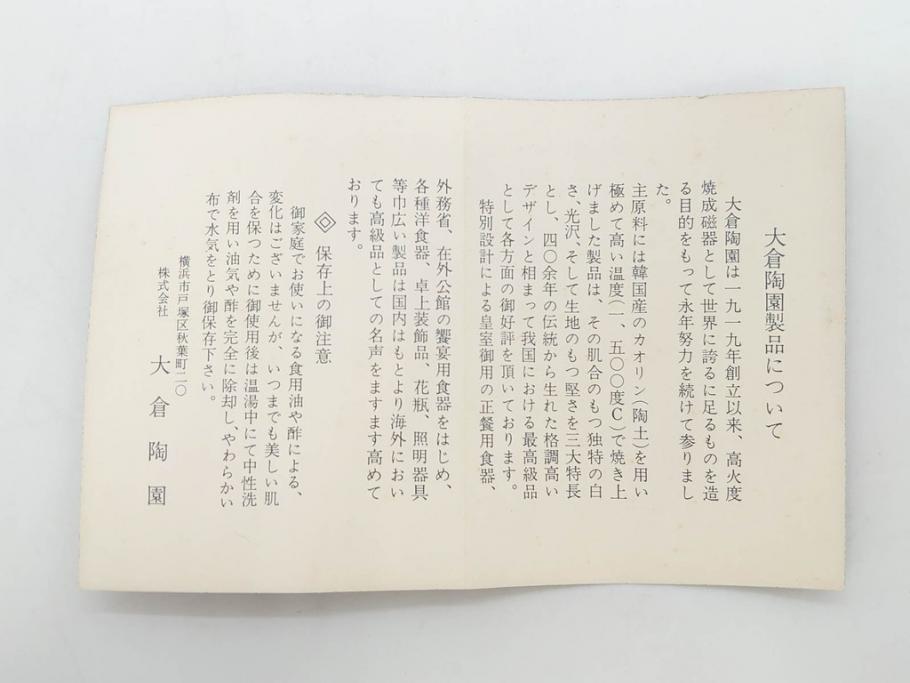 大倉陶園製品について
大倉陶園は一九一九年創立以来、高火度
焼成磁器として世界に誇るに足るものを造
る目的をもって永年努力を続けて参りまし
た。
主原料には韓国産のカオリン(陶土)を用い
極めて高い温度(一、五〇〇度C)で焼き上
げました製品は、その肌合のもつ独特の白
さ、光沢、そして生地のもつ堅さを三大特長
とし、四〇余年の伝統から生れた格調高い
デザインと相まって我国における最高級品
として各方面の御好評を頂いております。
特別設計による皇室御用の正餐用食器、
外務省、在外公館の饗宴用食器をはじめ、
各種洋食器、卓上装飾品、花瓶、照明器具
等巾広い製品は国内はもとより海外におい
ても高級品としての名声をますます高めて
おります。
保存上の御注意
御家庭でお使いになる食用油や酢による、
変化はございませんが、いつまでも美しい肌
合を保つために御使用後は温湯中にて中性洗
剤を用い油気や酢を完全に除却し、やわらかい
布で水気をとり御保存下さい。
横浜市戸塚区秋葉町二〇
株式会社 大倉陶園